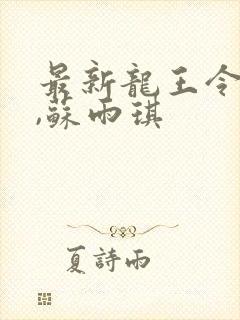 最新龍王令
,蘇雨琪
夏詩雨